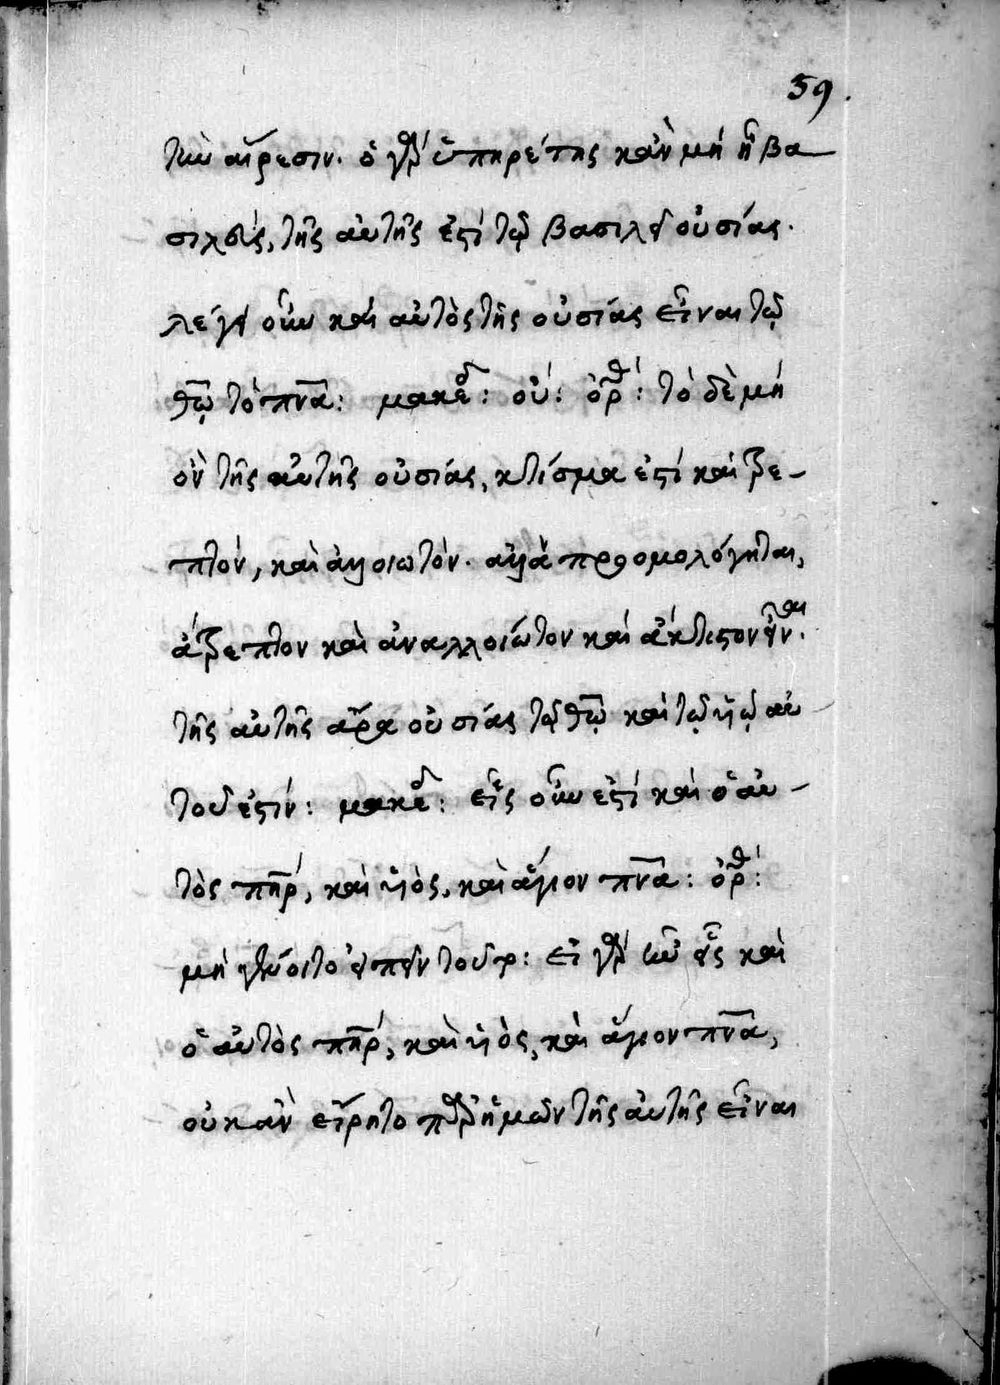 59.
τὴν αἵρεσιν. ὁ γὰρ ὑπηρέτης κἂν μὴ ἦ βα
σιλεὺς, τῆς αὐτῆς ἐστὶ τῷ βασιλεῖ οὐσίας.
λέγει οὖν καὶ αὐτὸς τῆς οὐσίας εἶναι τῷ
θῶ τὸ πνα: μακεδ: οὐ: ὀρθ: τὸ δὲ μὴ
ὂν τῆς αὐτῆς οὐσίας, κτίσμα ἐστὶ καὶ τρε-
πτὸν, καὶ ἀλλοιωτὸν. ἀλλὰ προομολόγηται,
ἄτρεπτον καὶ ἀναλλοίωτον καὶ ἄκτιστον εἶναι.
τῆς αὐτῆς ἄρα οὐσίας τῷ θῶ καὶ τῷ υἱῷ αὐ
τοῦ ἐστίν: μακεδ: εἷς οὖν ἐστὶ καὶ ὁ αὐ-
τὸς πηρ, καὶ υἱὸς, καὶ ἅγιον πνα: ὀρθ:
μὴ γένοιτο εἰπεῖν τοῦτο: εἰ γὰρ ἦν εἷς καὶ
ὁ αὐτὸς πηρ, καὶ υἱὸς, καὶ ἅγιον πνα,
οὐκ ἂν εἴρητο παρ' ἡμῶν τῆς αὐτῆς εἶναι